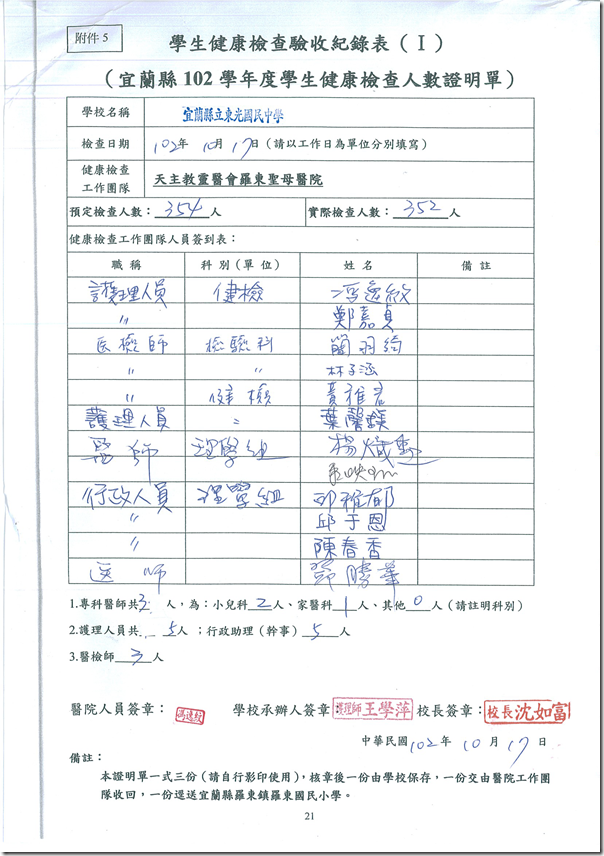 附件 5
學生健康檢查驗收紀錄表（I）
（宜蘭縣 102 學年度學生健康檢查人數證明單）
學校名稱 宜蘭縣立東光國民中學
檢查日期 102年 10月 17日（請以工作日為單位分別填寫）
健康檢查工作團隊 天主教靈醫會羅東聖母醫院
預定檢查人數：354人 實際檢查人數：352人
健康檢查工作團隊人員簽到表：
職稱 科別（單位） 姓名 備註
護理人員 健檢
〃 鄭嘉貞
医檢師 檢驗科
〃 〃 林子涵
〃 健檢 黃雅君
護理人員 〃 葉馨鎂
醫師 理學組
行政人員 理學組 邱雅郁
〃 邱于恩
〃 陳春香
医師
1.專科醫師共3人，為：小兒科2人、家醫科1人、其他0人（請註明科別）
2.護理人員共 5人；行政助理（幹事）5人
3.醫檢師3人
醫院人員簽章： 學校承辦人簽章：護理師王學萍 校長簽章：校長沈如富
中華民國102年 10月 17日
備註：
本證明單一式三份（請自行影印使用），核章後一份由學校保存，一份交由醫院工作團
隊收回，一份逕送宜蘭縣羅東鎮羅東國民小學。
21